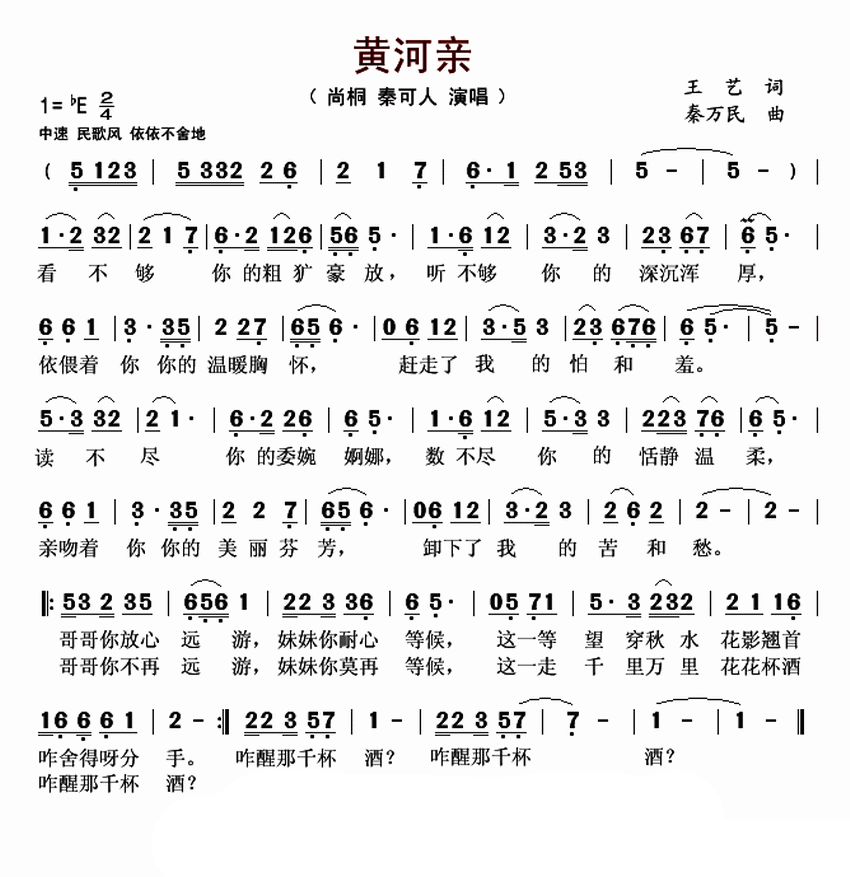 黄河亲
（ 尚桐 秦可人 演唱 ）
王 艺 词
秦万民 曲
1= ♭E 2/4
中速 民歌风 依依不舍地
（ 5 123 | 5 332 2 6 | 2 1 7 | 6· 1 2 53 | 5 - | 5 - ）|
1·2 32 | 2 1 7 | 6·2 126 | 56 5· | 1·6 12 | 3·2 3 | 23 67 | 6 5· |
看 不 够 你 的粗 犷 豪 放， 听 不够 你 的 深沉浑 厚，
6 6 1 | 3· 35 | 2 27 | 65 6· | 0 6 12 | 3·5 3 | 23 676 | 6 5· | 5 - |
依偎着 你 你的 温暖胸 怀， 赶走了 我 的 怕 和 羞。
5·3 32 | 2 1· | 6·2 26 | 6 5· | 1·6 12 | 5·3 3 | 223 76 | 6 5· |
读 不 尽 你 的委婉 婀娜， 数 不尽 你 的 恬静 温 柔，
6 6 1 | 3· 35 | 2 2 7 | 65 6· | 06 12 | 3·2 3 | 2 6 2 | 2 - | 2 - |
亲吻着 你 你的 美 丽 芬 芳， 卸下了 我 的 苦 和 愁。
|: 53 2 35 | 656 1 | 22 3 36 | 6 5· | 05 71 | 5· 3 232 | 2 1 16 |
哥哥你放心 远 游，妹妹你耐心 等候， 这一等 望 穿秋 水 花影翘首
哥哥你不再 远 游，妹妹你莫再 等候， 这一走 千 里万 里 花花杯酒
16 6 6 1 | 2 - :| 22 3 57 | 1 - | 22 3 57 | 7 - | 1 - | 1 - ‖
咋舍得呀分 手。 咋醒那千杯 酒？ 咋醒那千杯 酒？
咋醒那千杯 酒？